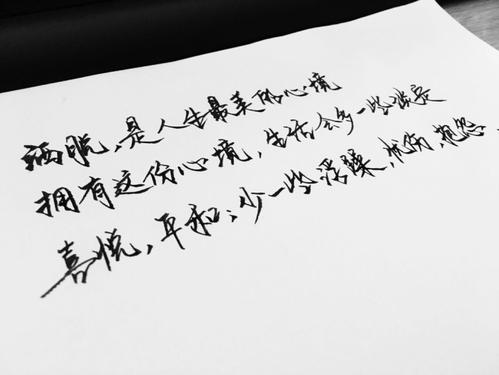 洒脱，是人生最美的心境
拥有这份心境，生活会多一些淡定
喜悦，平和；少一些浮躁，忧伤，抱怨